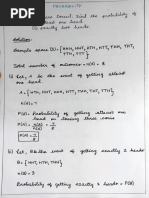 PROBABILITY
tossed. Find the probability of
least one head.
(ii) exactly two heads.
Solution:
Sample space (S) = {HHH, HHT, HTH, THH, TTH, THT,
HTT, TTT}
Total number of outcomes = n(S) = 8
(i) Let, A be the event of getting atleast
one head.
A = {
P(A) = Probability of getting atleast one
head on tossing three coins
P(A) = n(A)/n(S) = 7/8
P(A) = 7/8
(ii) Let, B be the event of getting exactly 2 heads
B = {HHT, HTH, THH}
Probability of getting exactly 2 heads = P(B)